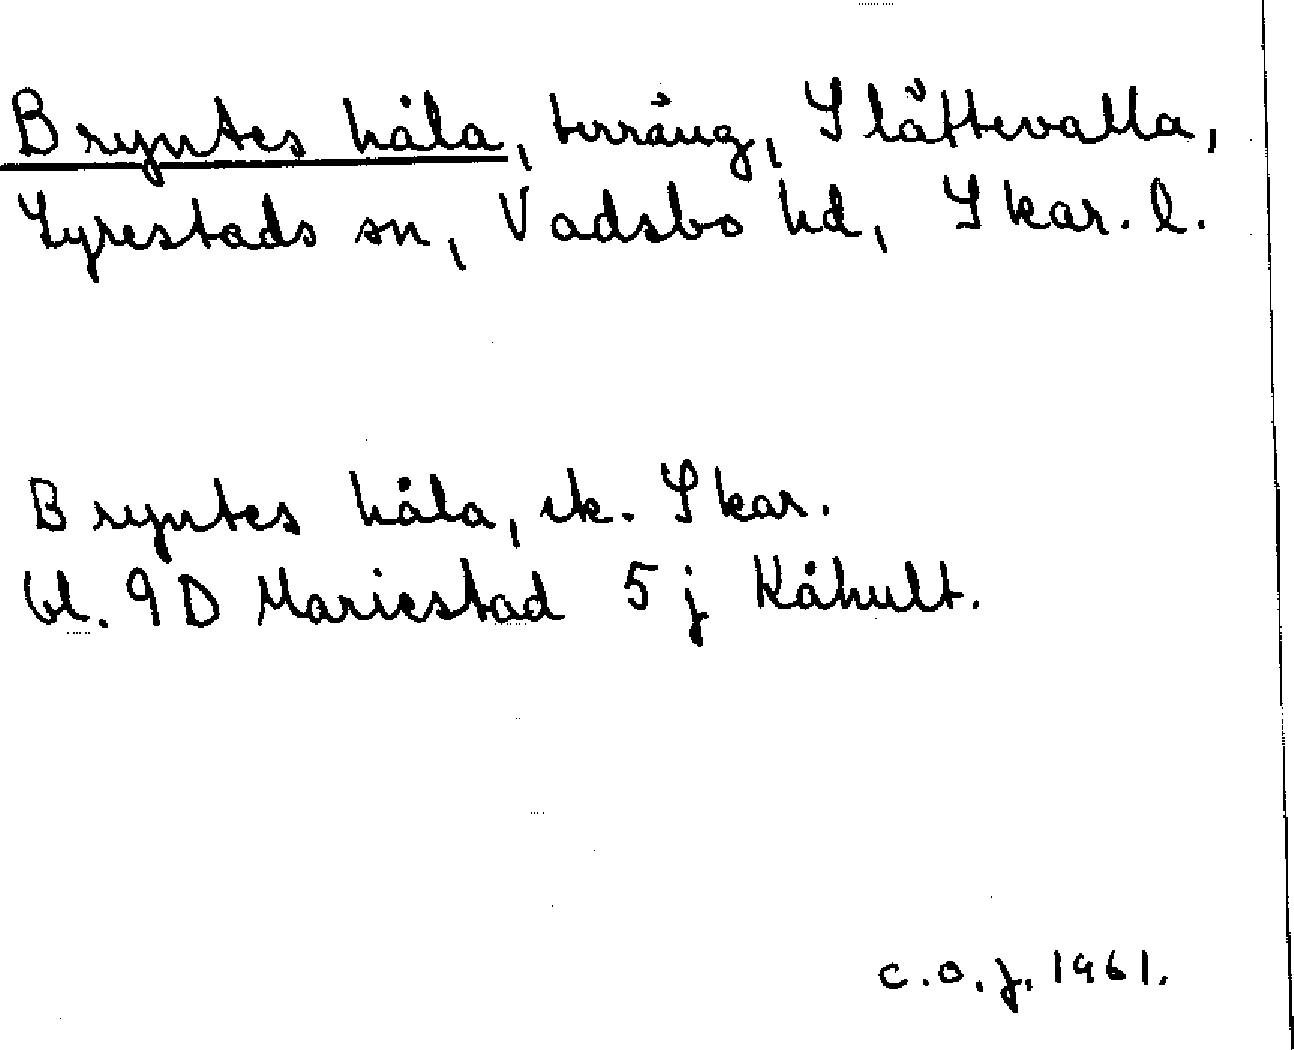 Bryntes håla, terräng, Slättevalla,
Lyrestads sn, Vadsbo hd, Skar. l.
Bryntes håla, ek. Skar.
bl. 9D Mariestad 5 j Kåhult.
c.o.j. 1961.